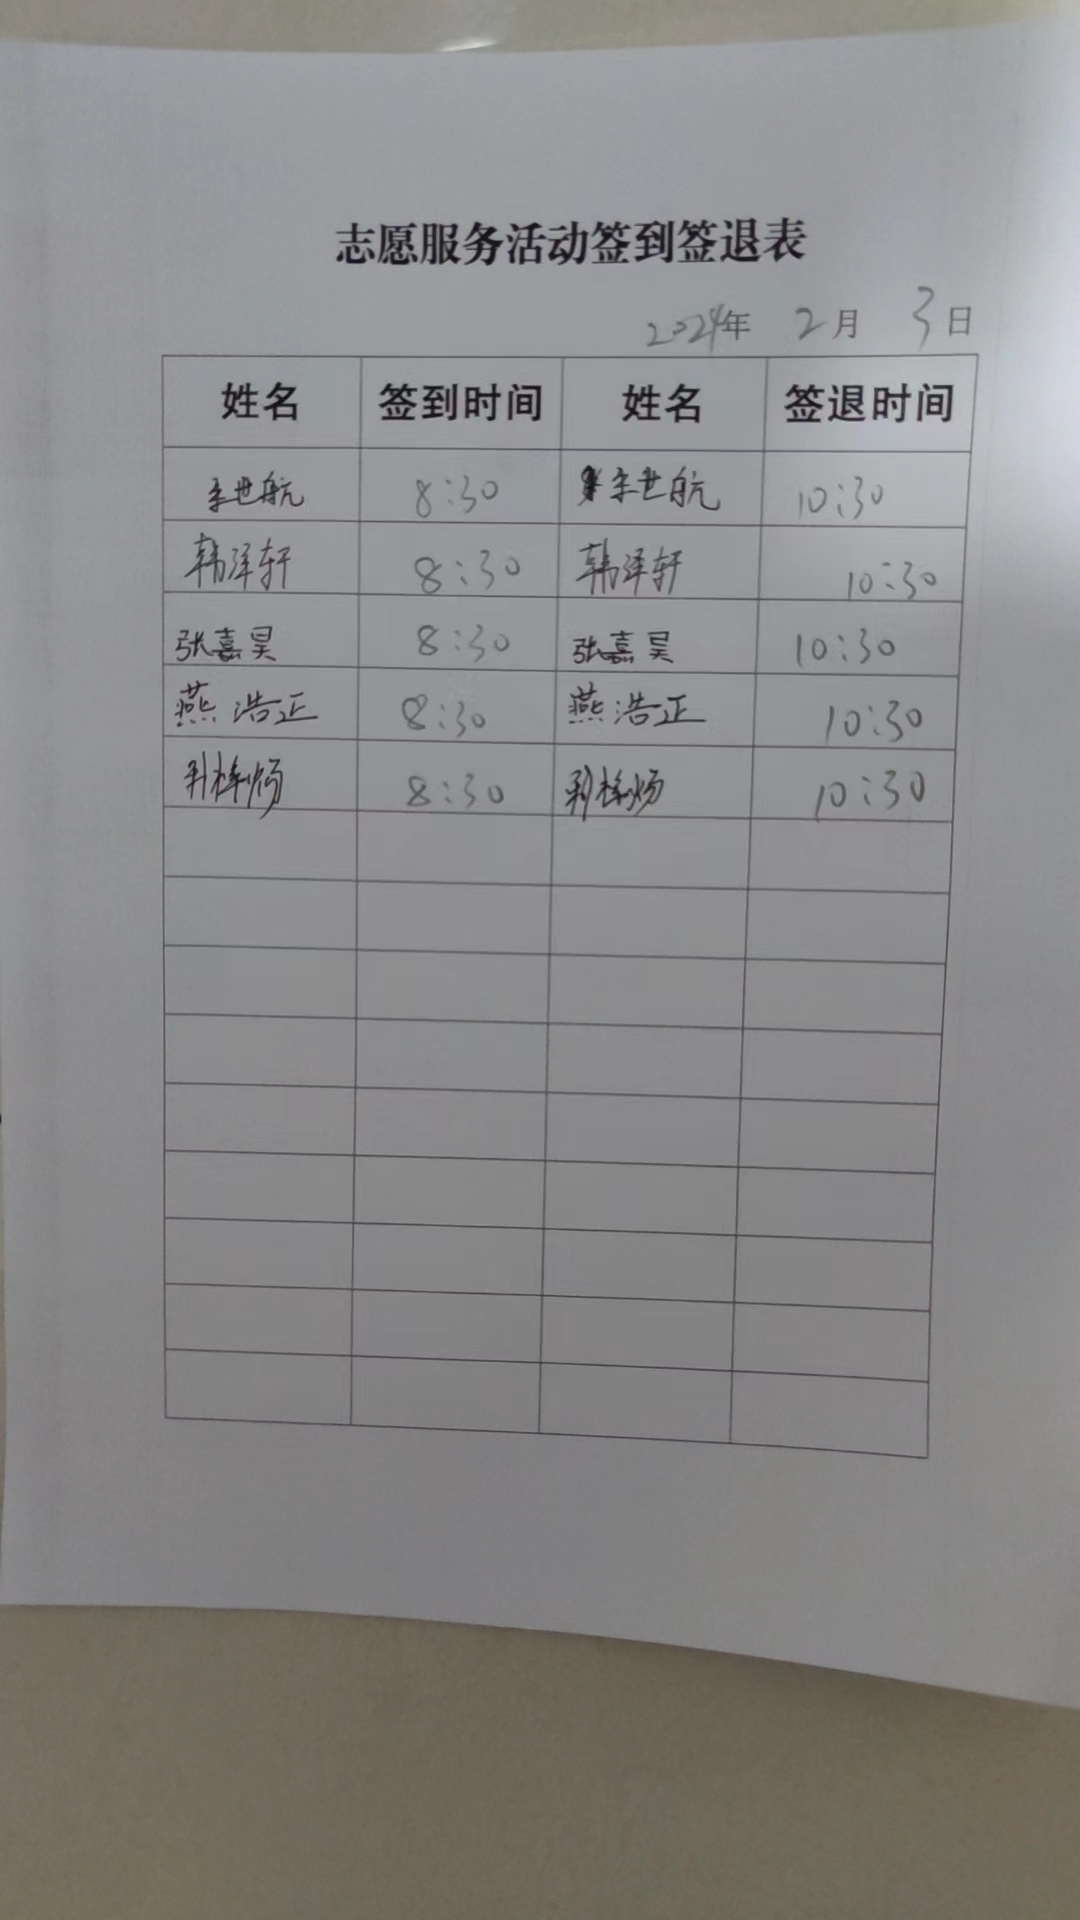 志愿服务活动签到签退表
2024年 2月 3日
姓名 签到时间 姓名 签退时间
世航 8:30 世航 10:30
韩泽轩 8:30 韩泽轩 10:30
张嘉昊 8:30 张嘉昊 10:30
燕浩正 8:30 燕浩正 10:30
8:30 10:30